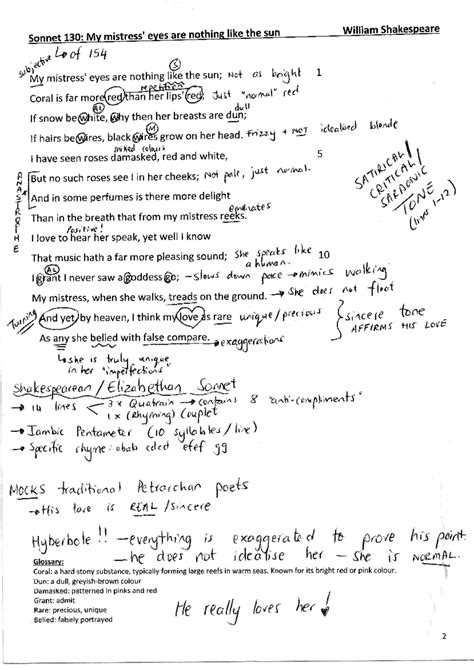 Sonnet 130: My mistress' eyes are nothing like the sun William Shakespeare
subjective of 154
S
My mistress' eyes are nothing like the sun; Not as bright 1
repetition
Coral is far more red than her lips' red; Just "normal" red
dull
If snow be white, why then her breasts are dun;
M
If hairs be wires, black wires grow on her head. frizzy + NOT idealised blonde
mixed colours
I have seen roses damasked, red and white, 5
But no such roses see I in her cheeks; Not pale, just normal.
ANASTROPHE
And in some perfumes is there more delight
SATIRICAL/
CRITICAL/
SARDONIC
TONE
(lines 1-12)
Than in the breath that from my mistress reeks.
Positive!
I love to hear her speak, yet well I know
That music hath a far more pleasing sound; She speaks like 10
a human.
AL
I grant I never saw a goddess go; - slows down pace → mimics walking
My mistress, when she walks, treads on the ground. → She does not float
Turning And yet by heaven, I think my love as rare unique/precious
sincere tone
AFFIRMS HIS LOVE
As any she belied with false compare. → exaggerations
↳ she is truly unique
in her "imperfections"
Shakespearean / Elizabethan Sonnet
→ 14 lines 3 x Quatrain → contains 8 "anti-compliments"
1 x (Rhyming) Couplet
→ Iambic Pentameter (10 syllables / line)
→ Specific rhyme: abab cdcd efef gg
MOCKS traditional Petrarchan poets
→ His love is REAL / sincere
Hyberbole !! - everything is exaggerated to prove his point.
- he does not idealise her - she is NORMAL.
Glossary:
Coral: a hard stony substance, typically forming large reefs in warm seas. Known for its bright red or pink colour.
Dun: a dull, greyish-brown colour
Damasked: patterned in pinks and red
Grant: admit
Rare: precious, unique
Belied: falsely portrayed
He really loves her!
2